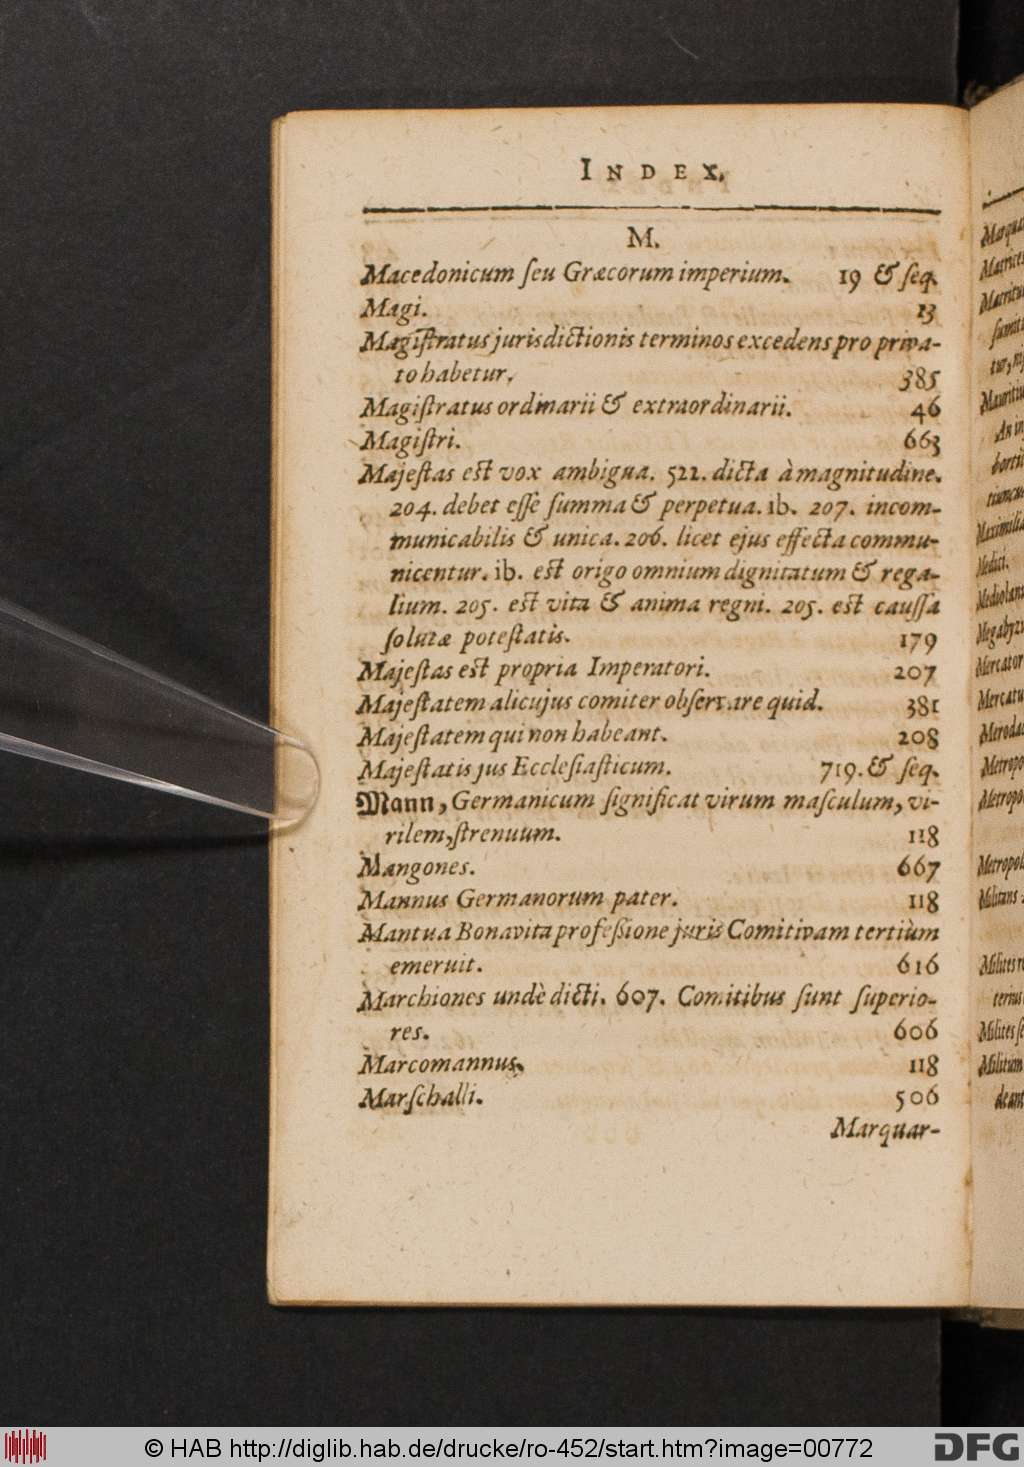 INDEX.
M.
Macedonicum ſeu Græcorum imperium. 19 & ſeq.
Magi. 13
Magiſtratus jurisdictionis terminos excedens pro priva-
to habetur. 385
Magiſtratus ordinarii & extraordinarii. 46
Magiſtri. 663
Majeſtas eſt vox ambigua. 522. dicta à magnitudine.
204. debet eſſe ſumma & perpetua. ib. 207. incom-
municabilis & unica. 206. licet ejus effecta commu-
nicentur. ib. eſt origo omnium dignitatum & rega-
lium. 205. eſt vita & anima regni. 205. eſt cauſſa
ſolutæ poteſtatis. 179
Majeſtas eſt propria Imperatori. 207
Majeſtatem alicujus comiter obſervare quid. 381
Majeſtatem qui non habeant. 208
Majeſtatis jus Eccleſiaſticum. 719. & ſeq.
Mann, Germanicum ſignificat virum maſculum, vi-
rilem, ſtrenuum. 118
Mangones. 667
Mannus Germanorum pater. 118
Mantua Bonavita profeſſione juris Comitivam tertiùm
emeruit. 616
Marchiones undè dicti. 607. Comitibus ſunt ſuperio-
res. 606
Marcomannus. 118
Marſchalli. 506
Marquar-
© HAB http://diglib.hab.de/drucke/ro-452/start.htm?image=00772
DFG